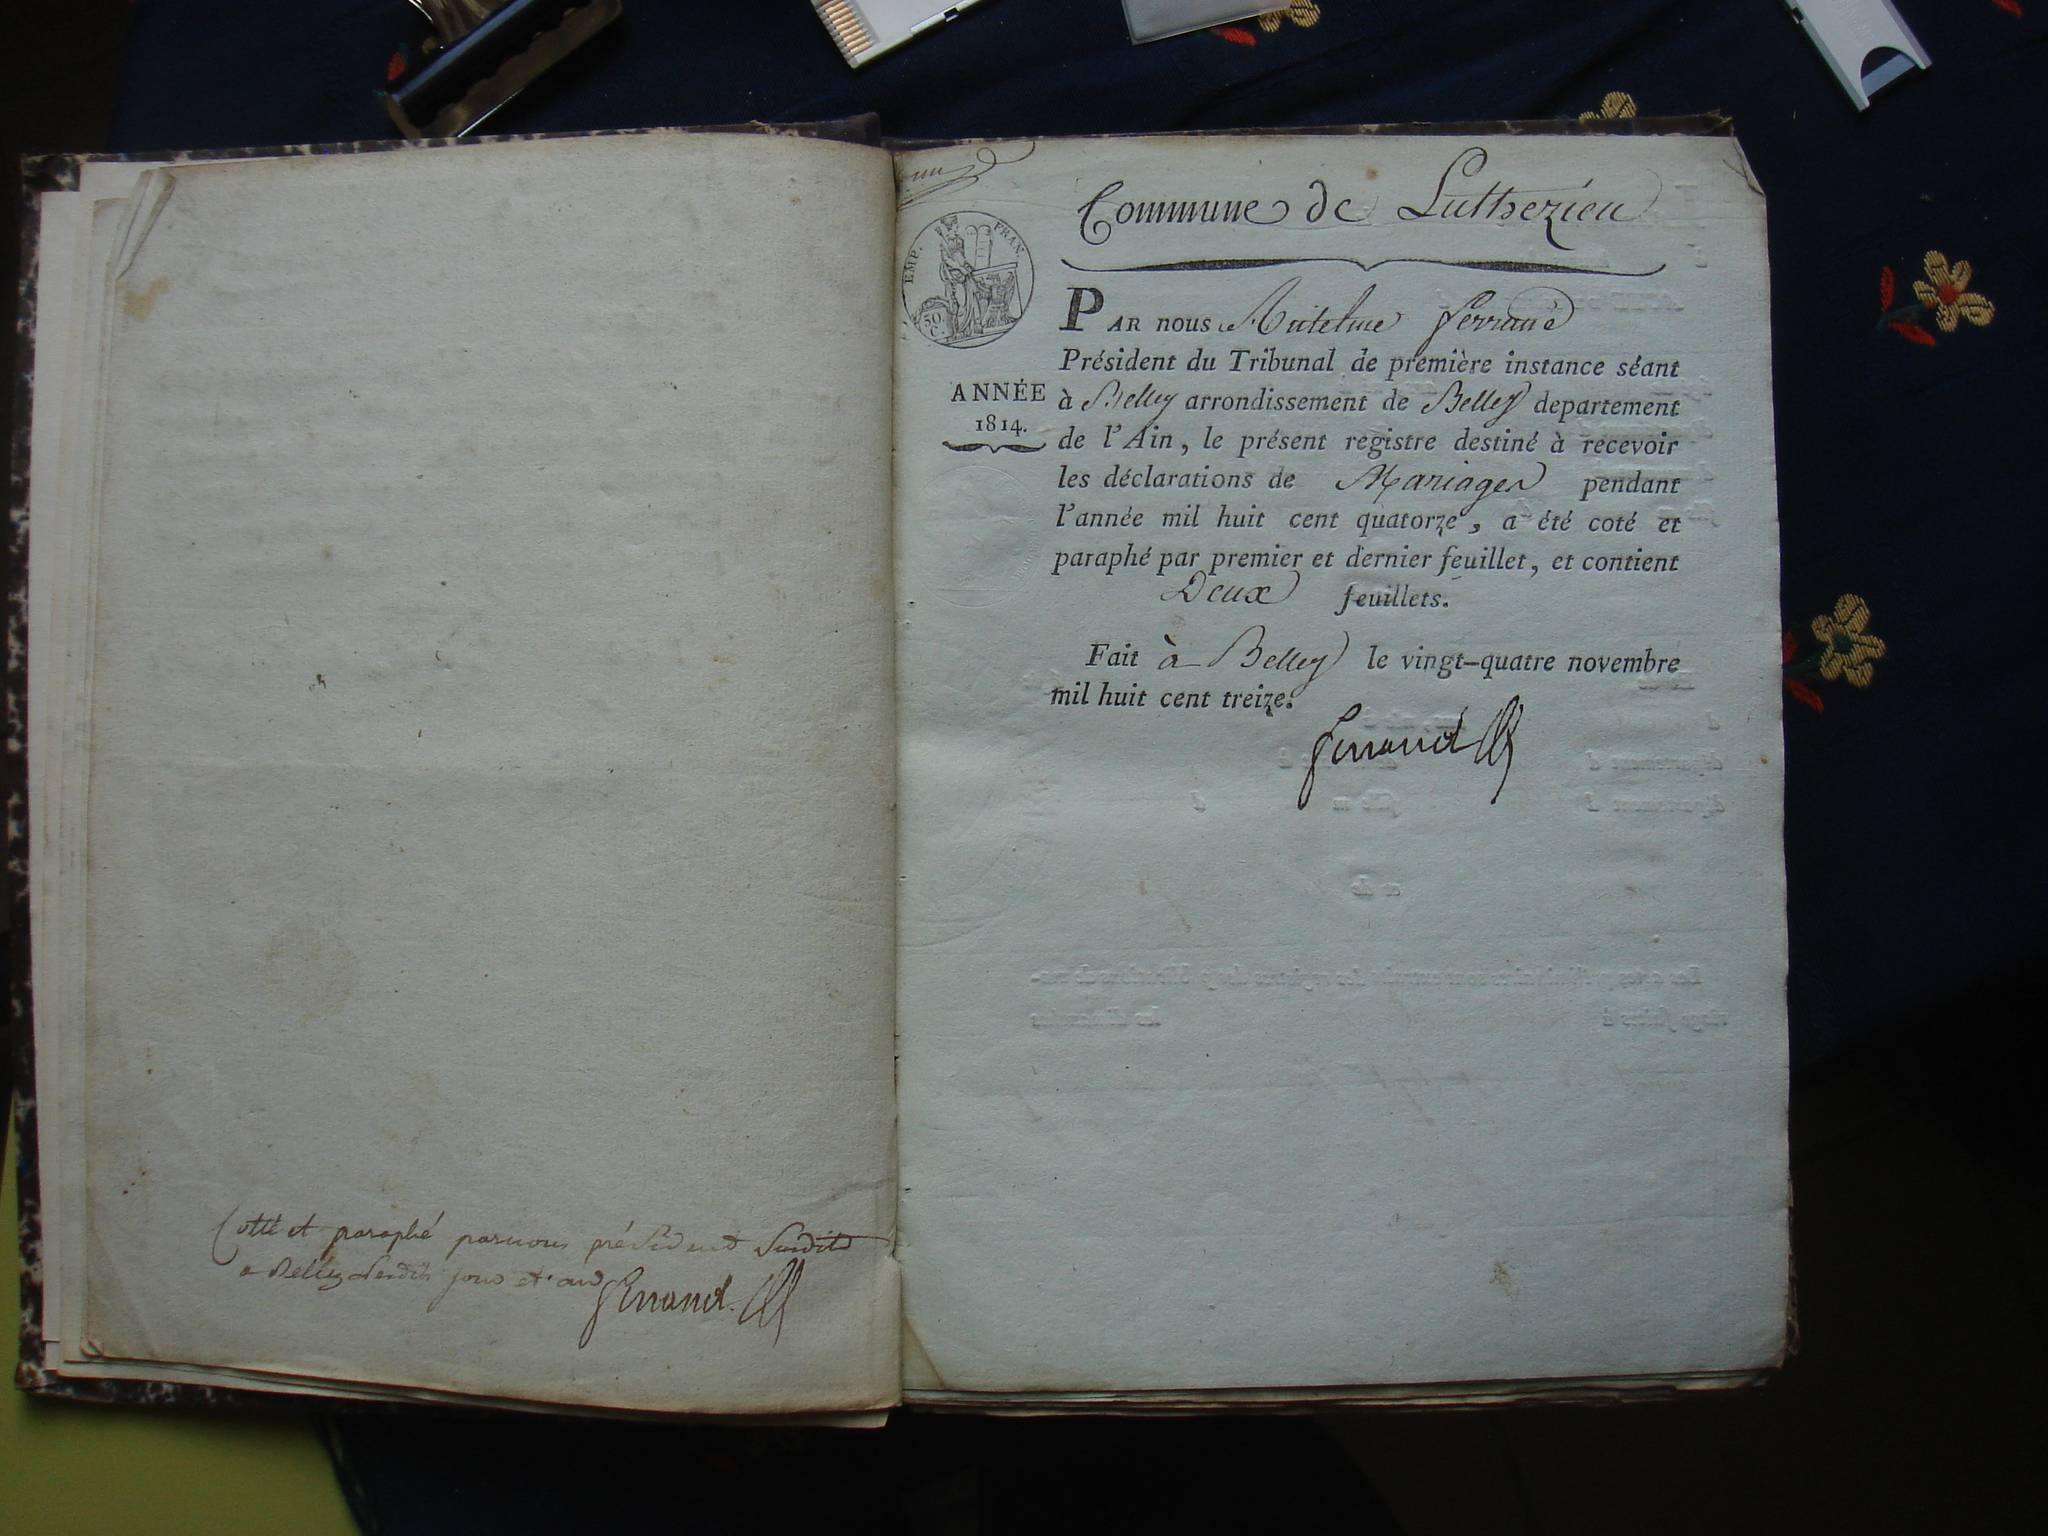 Cotté et paraphé par nous président Susdit
a Belley Lesdits jour et an Ferrand
Commune de Lutherieu
EMP. FRAN.
50. C.
ANNÉE
1814.
PAR nous Antelme Ferrand
Président du Tribunal de première instance séant
à Belley arrondissement de Belley departement
de l'Ain, le présent registre destiné à recevoir
les déclarations de Mariages pendant
l'année mil huit cent quatorze, a été coté et
paraphé par premier et dernier feuillet, et contient
Deux feuillets.
Fait à Belley le vingt-quatre novembre
mil huit cent treize.
Ferrand